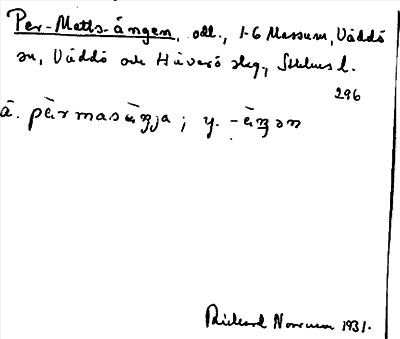 Per-Matts-ängen, odl., 1-6 Massum, Väddö
sn, Väddö och Häverö slg, Sthlms l.
296
ä. pàrmasàŋja; y. -àŋən
Rickard Norrman 1931.